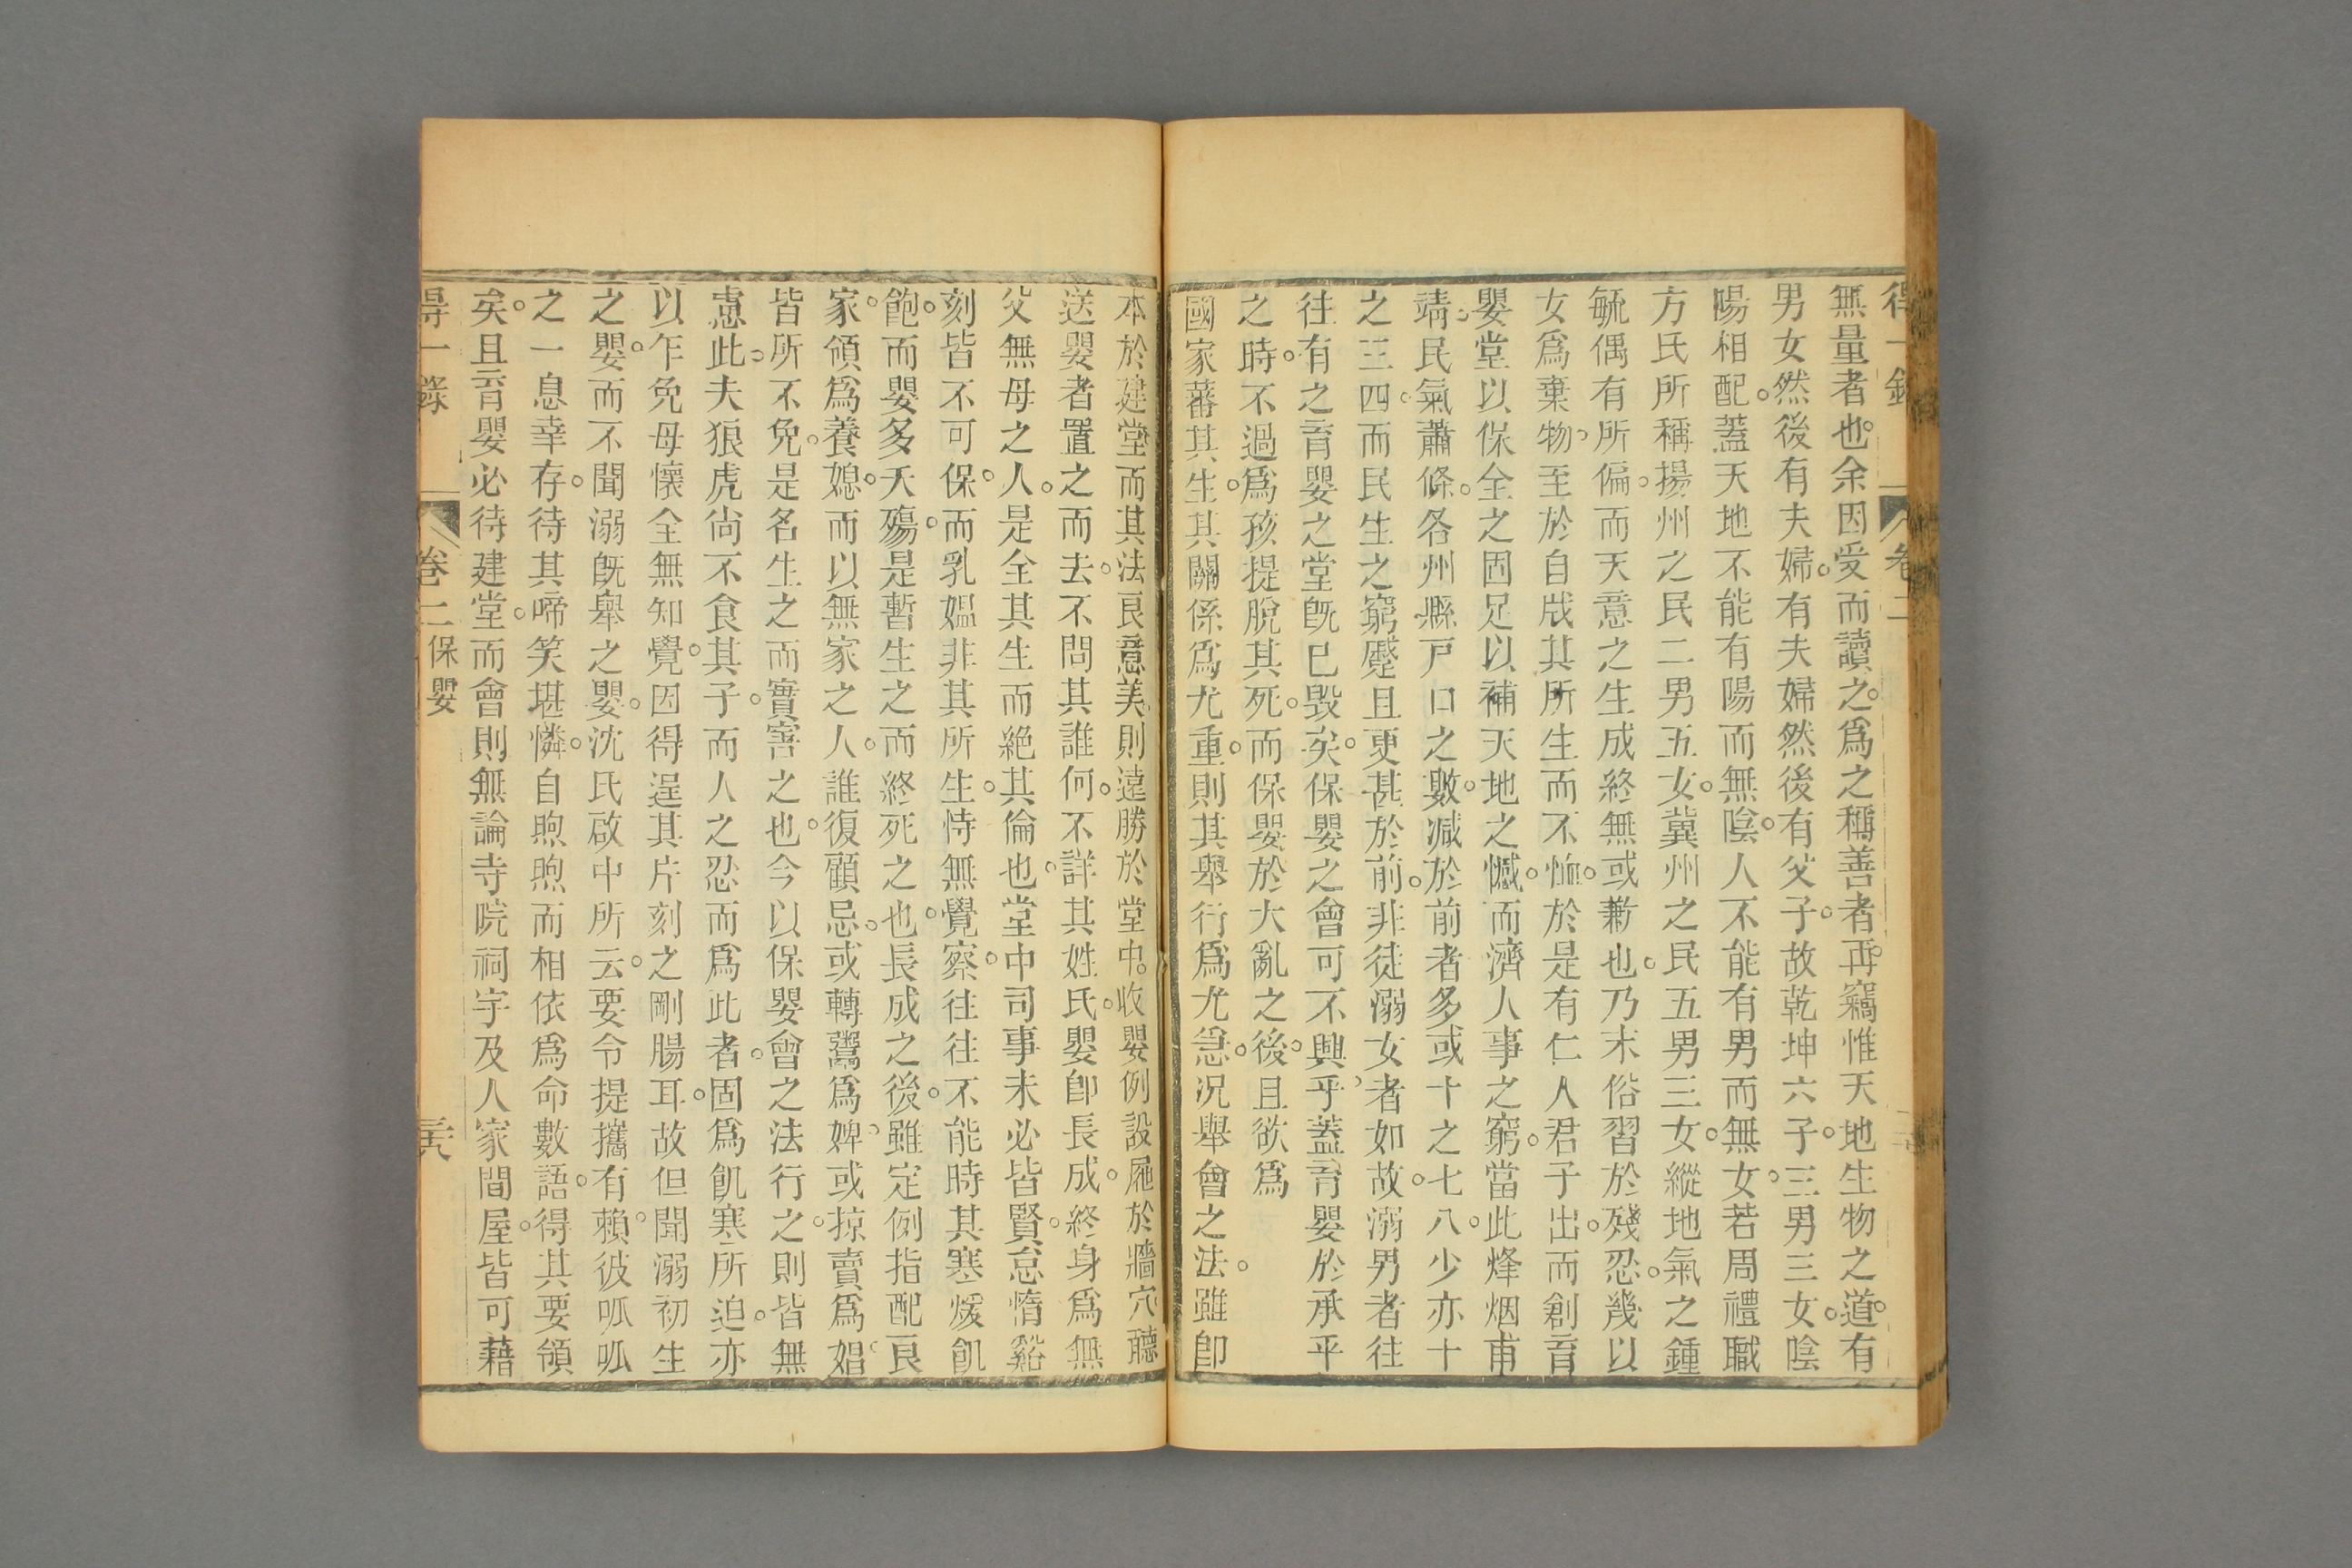 得一錄 卷二
無量者也。余因受而讀之。爲之稱善者再。竊惟天地生物之道。有
男女然後有夫婦。有夫婦然後有父子。故乾坤六子。三男三女。陰
陽相配。蓋天地不能有陽而無陰。人不能有男而無女。若周禮職
方氏所稱。揚州之民二男五女。冀州之民五男三女。縱地氣之鍾
毓偶有所偏。而天意之生成終無或斁也。乃末俗習於殘忍。幾以
女爲棄物。至於自戕其所生而不恤。於是有仁人君子出。而創育
嬰堂以保全之。固足以補天地之憾。而濟人事之窮。當此烽烟甫
靖。民氣蕭條。各州縣戸口之數。減於前者多或十之七八。少亦十
之三四。而民生之窮蹙且更甚於前。非徒溺女者如故。溺男者往
往有之。育嬰之堂旣已毁矣。保嬰之會可不興乎。蓋育嬰於承平
之時。不過爲孩提脫其死。而保嬰於大亂之後。且欲爲
國家蕃其生。其關係爲尤重。則其舉行爲尤急。況舉會之法。雖卽
本於建堂而其法良意美。則遠勝於堂中。收嬰例設屜於牆穴聽
送嬰者置之而去。不問其誰何。不詳其姓氏。嬰卽長成。終身爲無
父無母之人。是全其生而絕其倫也。堂中司事未必皆賢。怠惰谿
刻皆不可保。而乳媼非其所生。恃無覺察。往往不能時其寒煖飢
飽。而嬰多夭殤。是暫生之而終死之也。長成之後。雖定例指配良
家。領爲養媳。而以無家之人。誰復顧忌。或轉鬻爲婢。或掠賣爲娼。
皆所不免。是名生之而實害之也。今以保嬰會之法行之。則皆無
慮此。夫狼虎尚不食其子。而人之忍而爲此者。固爲飢寒所迫。亦
以乍免母懷全無知覺。因得逞其片刻之剛腸耳。故但聞溺初生
之嬰。而不聞溺旣舉之嬰。沈氏啟中所云。要令提攜有賴。彼呱呱
之一息幸存。待其啼笑堪憐。自煦煦而相依爲命數語。得其要領
矣。且育嬰必待建堂。而會則無論寺院祠宇及人家間屋。皆可藉
得一錄 卷二 保嬰 三六